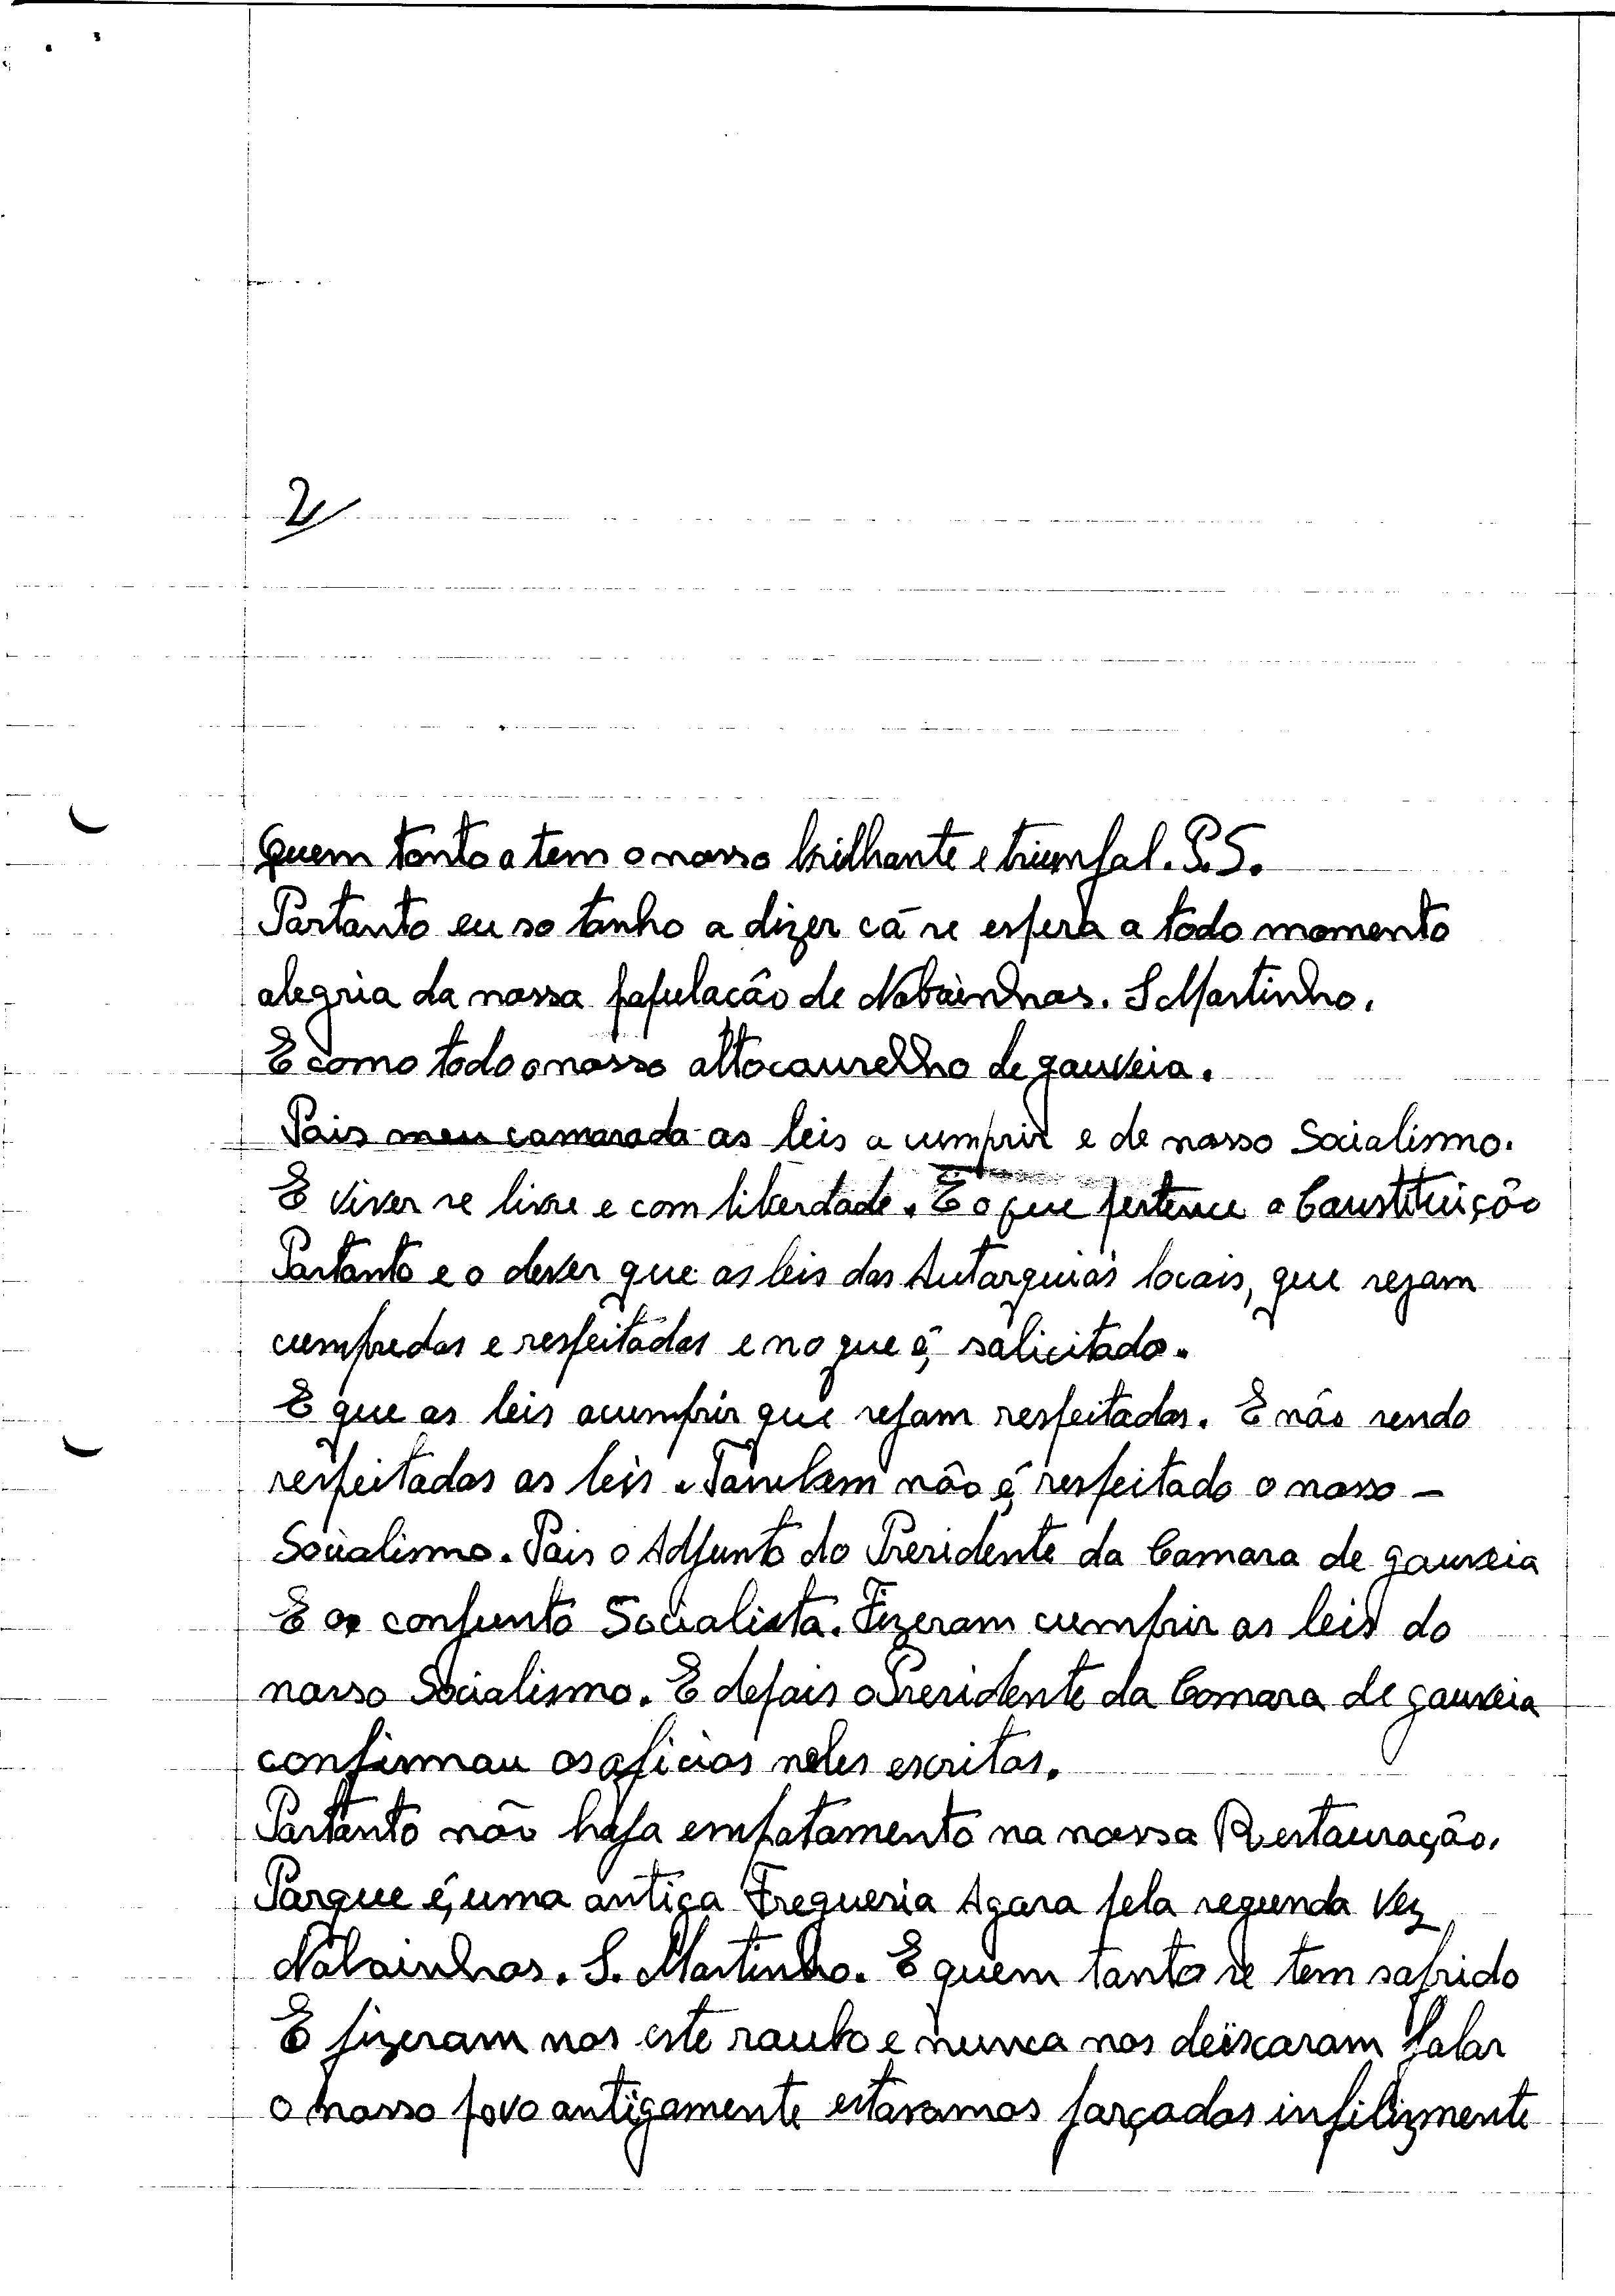 2
Quem tanto a tem o nosso brilhante e triumfal. P.S.
Portanto eu so tanho a dizer cá se espera a todo momento
alegria da nossa população de Nabainhas. S Martinho.
E como todo o nosso alto courelho de gouveia.
Pois meu camarada as leis a cumprir e de nosso Socialismo.
E viver se livre e com liberdade. E o que pertence a Constituição
Portanto e o dever que as leis das Autarquias locais, que sejam
cumpredas e respeitadas e no que é, solicitado.
E que as leis acumprir que sejam respeitadas. E não sendo
respeitadas as leis. Tambem não é, respeitado o nosso -
Socialismo. Pois o Adjunto do Presidente da Camara de gouveia
E os conjunto Socialista. Fizeram cumprir as leis do
nosso Socialismo. E depois o Presidente da Camara de gouveia
confirmou os oficios neles escritos.
Portanto não haja empatamento na nossa Restauração.
Porque é, uma antiga Freguesia Agora pela segunda vez
Nabainhas. S. Martinho. E quem tanto se tem sofrido
E fizeram nos este roubo e nunca nos deixaram falar
o nosso povo antigamente estavamos forçados infilizmente